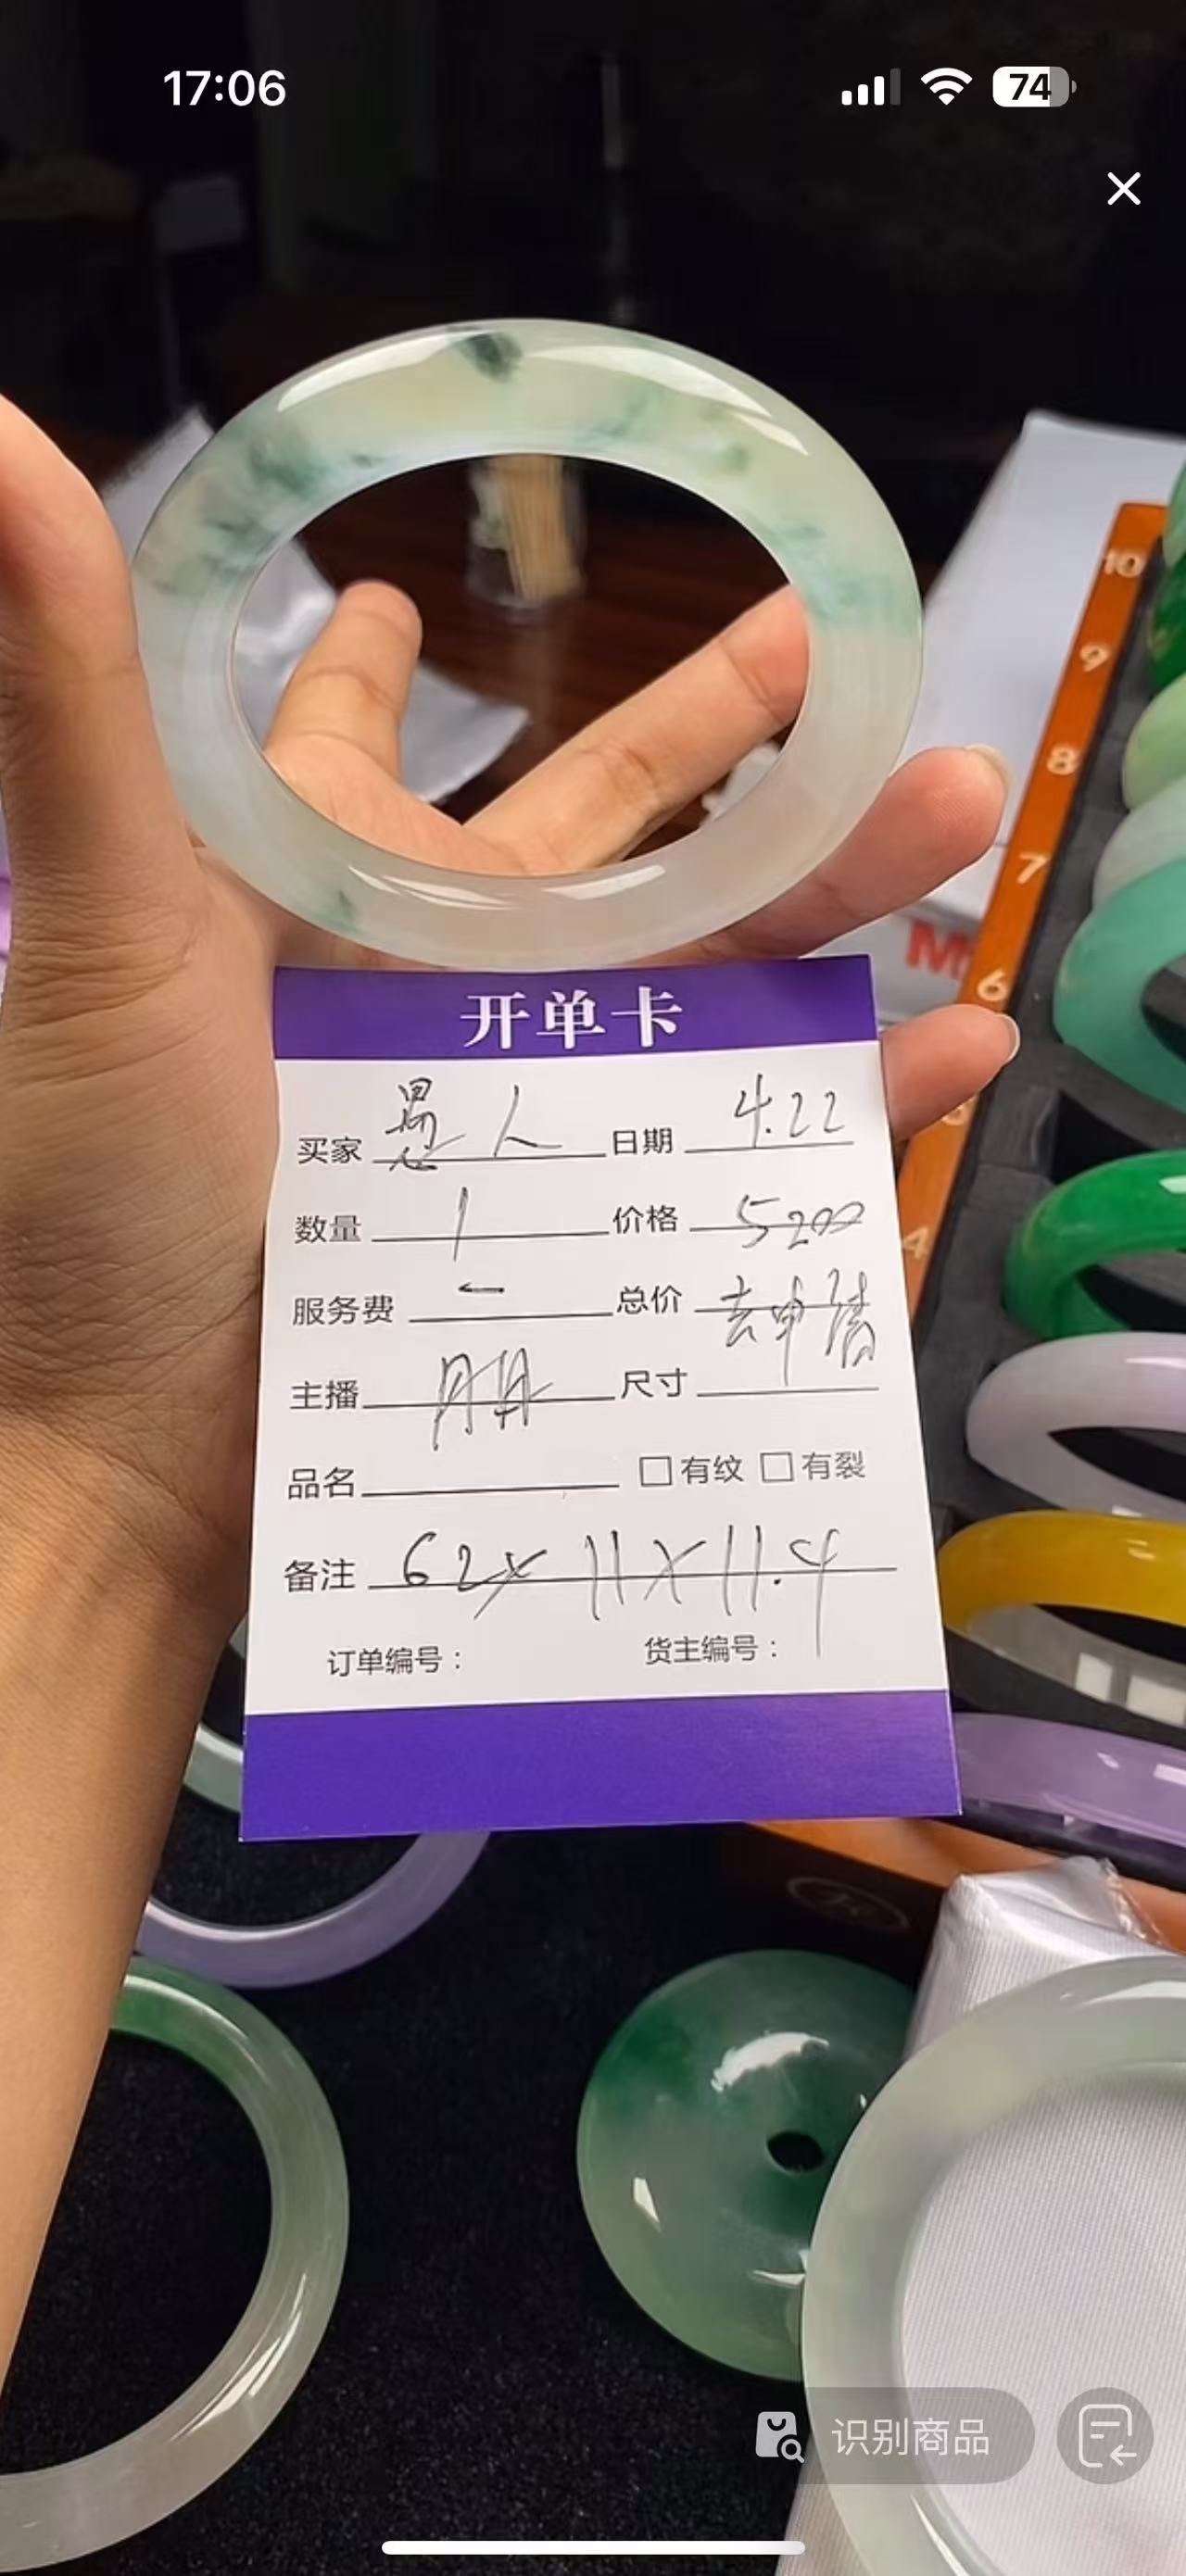 17:06
74
10
9
8
7
M
6
5
4
开单卡
买家 愚人 日期 4.22
数量 1 价格 5200
服务费 - 总价 去申请
主播 尺寸
品名 □有纹 □有裂
备注 62x11x11.4
订单编号： 货主编号：
识别商品